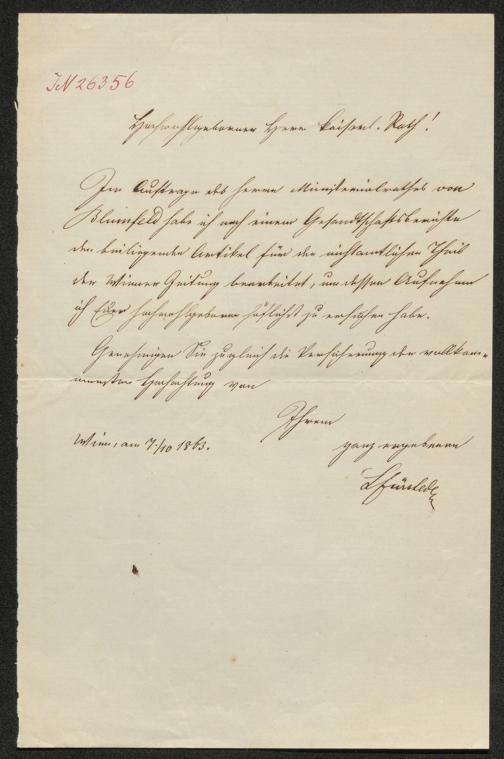 IN 26356
Hochwohlgeborner Herr kaiserl. Rath!
Im Auftrage des Herrn Ministerialrathes von
Blumfeld habe ich nach einem Gesandtschaftsberichte
den beiliegenden Artikel für den nichtamtlichen Theil
der Wiener Zeitung bearbeitet, um dessen Aufnahme
ich Euer Hochwohlgeboren höflichst zu ersuchen habe.
Genehmigen Sie zugleich die Versicherung der vollkom-
mensten Hochachtung von
Ihrem
Wien, am 7./10 1863.
ganz ergebenen